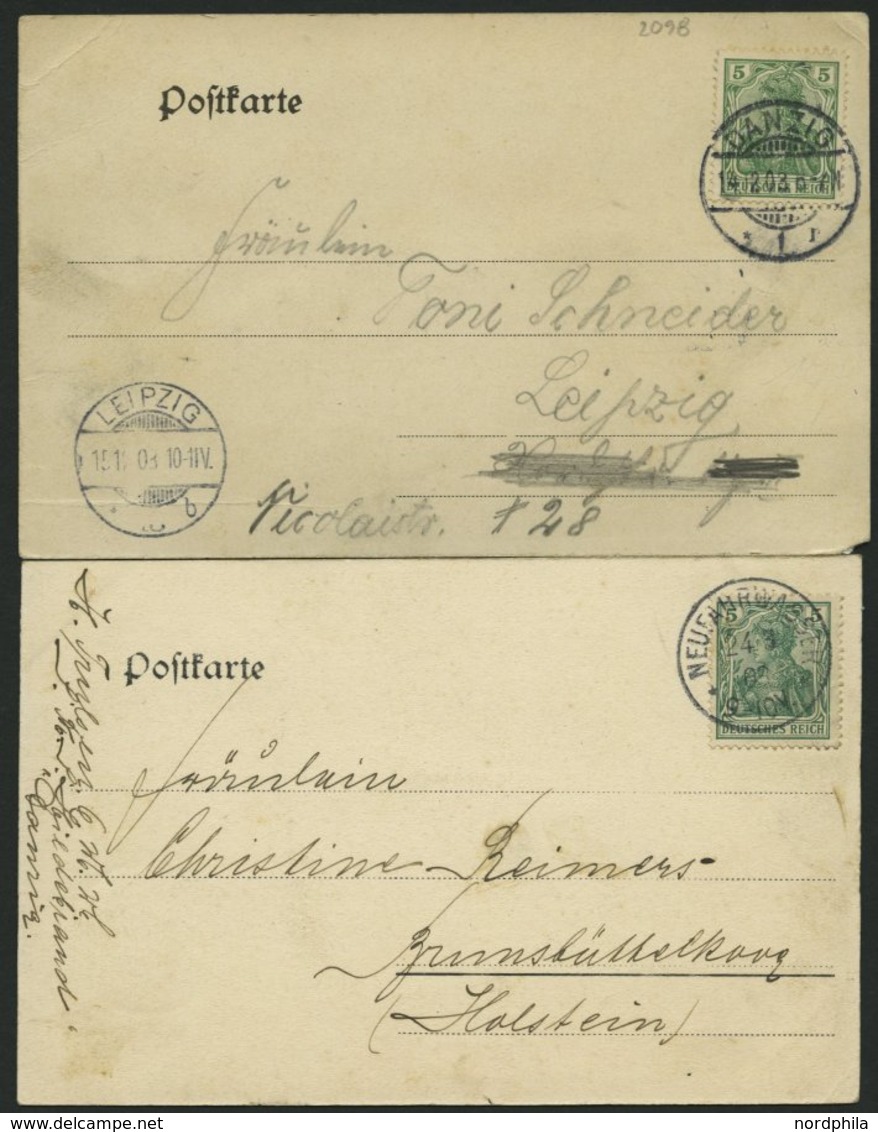 2098
Postkarte
5 5
DANZIG
DEUTSCHES REICH
* 1 r
Fräulein
Toni Schneider
Leipzig
LEIPZIG
10-11V.
* b
Nicolaistr. # 28
Postkarte
5 5
NEUFAHRWASSER
24
9-10V.
DEUTSCHES REICH
Fräulein
Christine Reimers
Brunsbüttelkoog
(Holstein)
Danzig.
nordphila